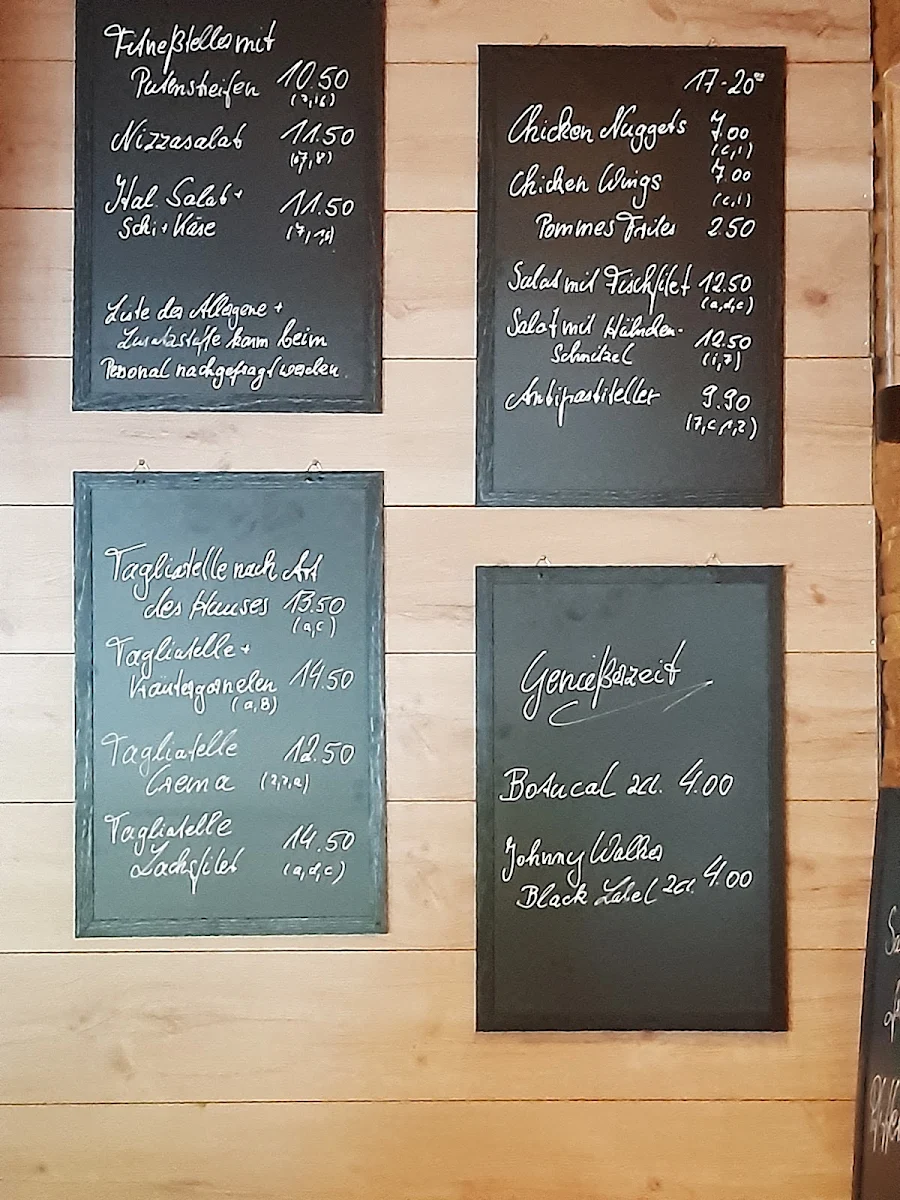 Fitneßteller mit
Putenstreifen 10.50
(7,16)
Nizzasalat 11.50
(67,8)
Ital. Salat +
Schi + Käse 11.50
Liste der Allergene +
Zusatzstoffe kann beim
Personal nachgefragt werden.
17-20⁰⁰
Chicken Nuggets 7.00
(c,i)
Chicken Wings 7.00
(c,i)
Pommes Frites 2.50
Salat mit Fischfilet 12.50
(a,d,c)
Salat mit Hühnder-
Schnitzel 12.50
(i,7)
Antipastiteller 9.90
(7,c,1,2)
Tagliatelle nach Art
des Hauses 13.50
(a,c)
Tagliatelle +
Kräutergarnelen 14.50
(a,B)
Tagliatelle 12.50
Crema (2,7,a)
Tagliatelle
Lachsfilet 14.50
(a,d,c)
Genießerzeit
Botucal 2cl. 4.00
Johnny Walker
Black Label 2cl. 4.00